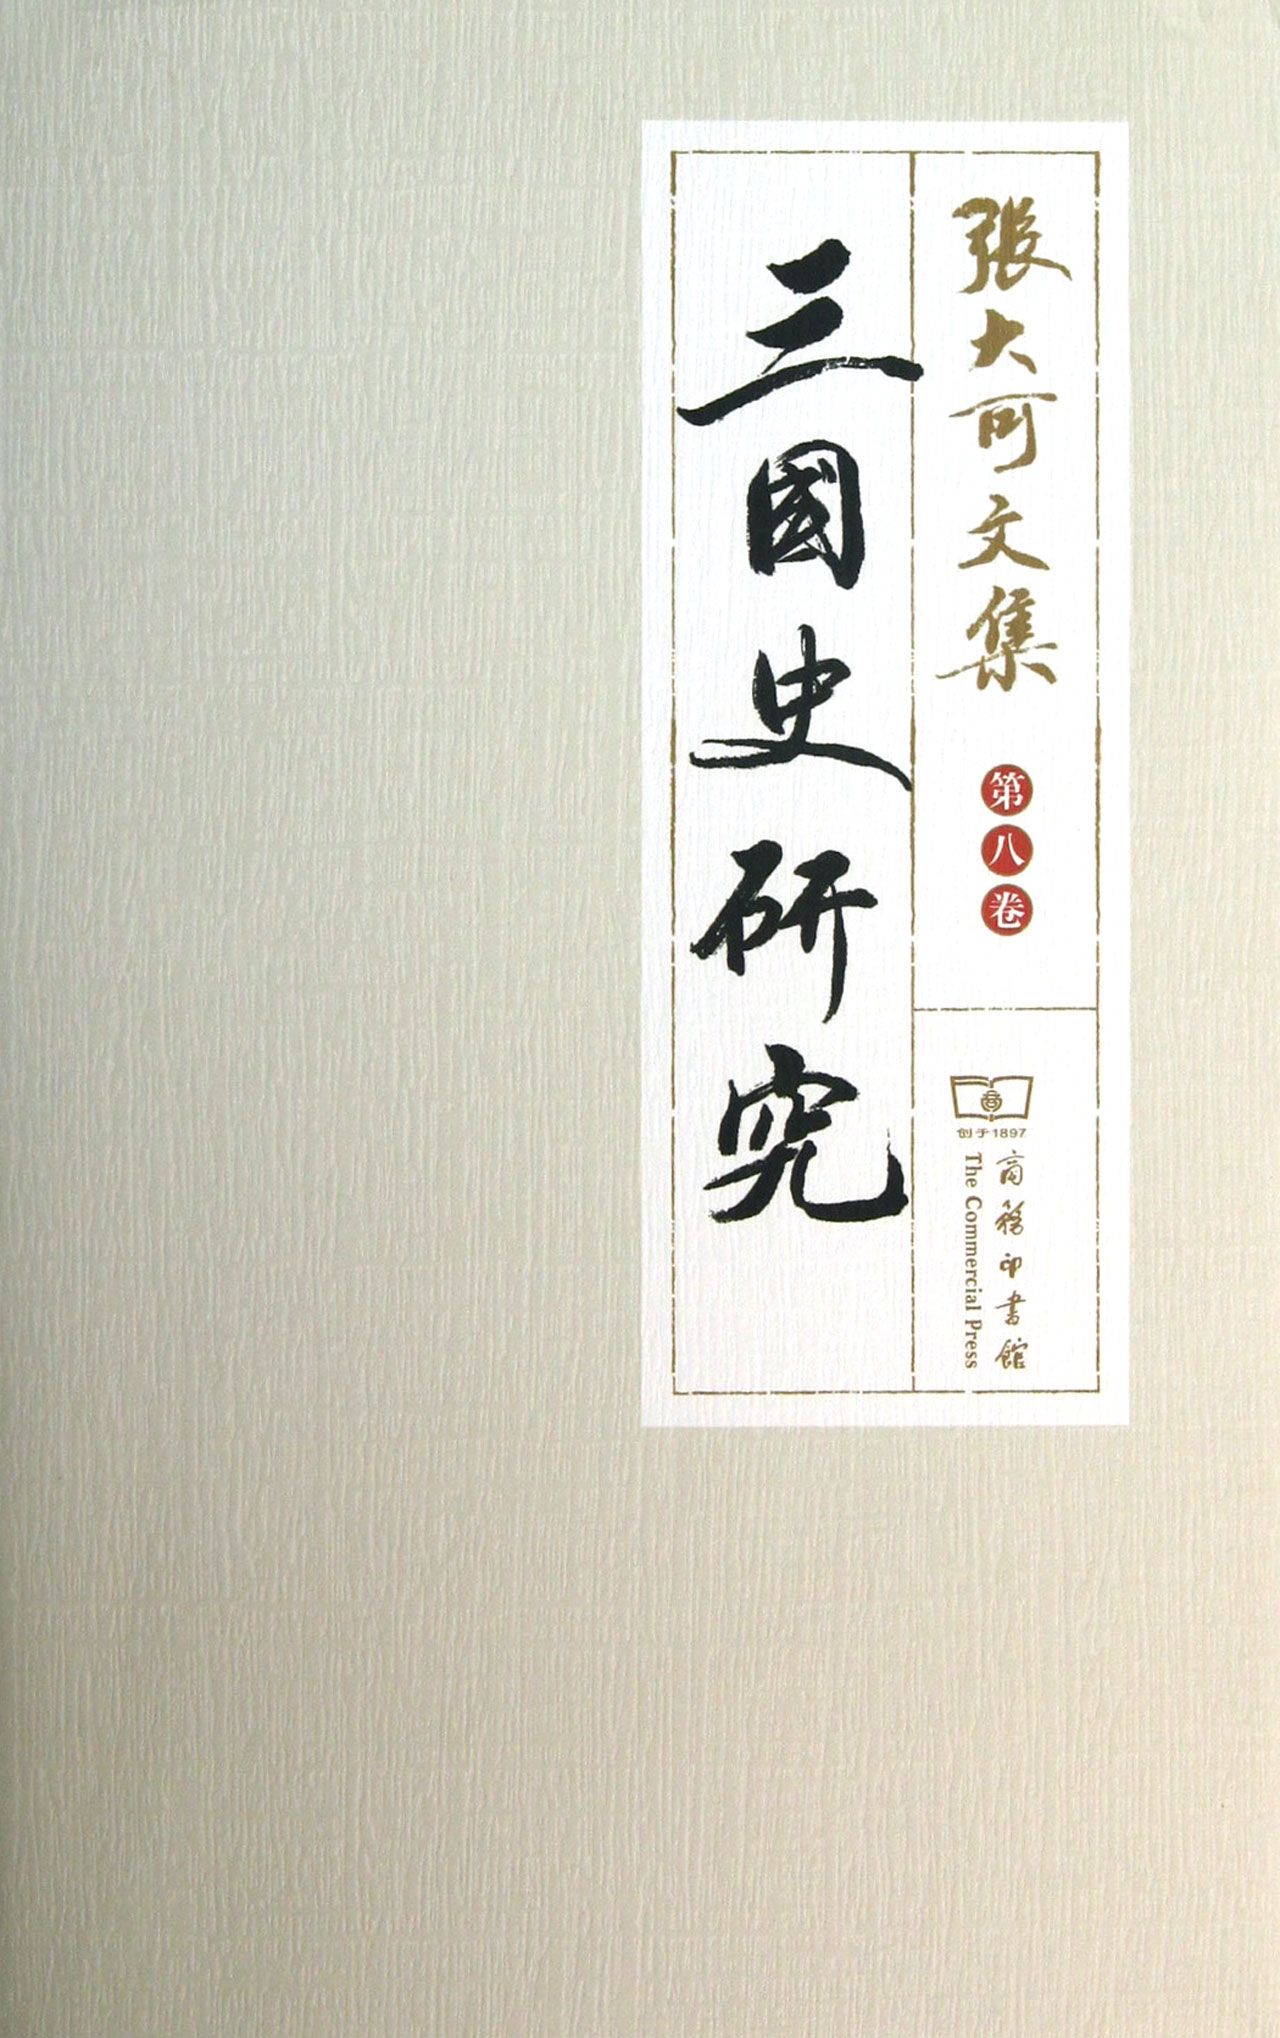 張大可文集
第八卷
三國史研究
创于1897
商務印書館
The Commercial Press